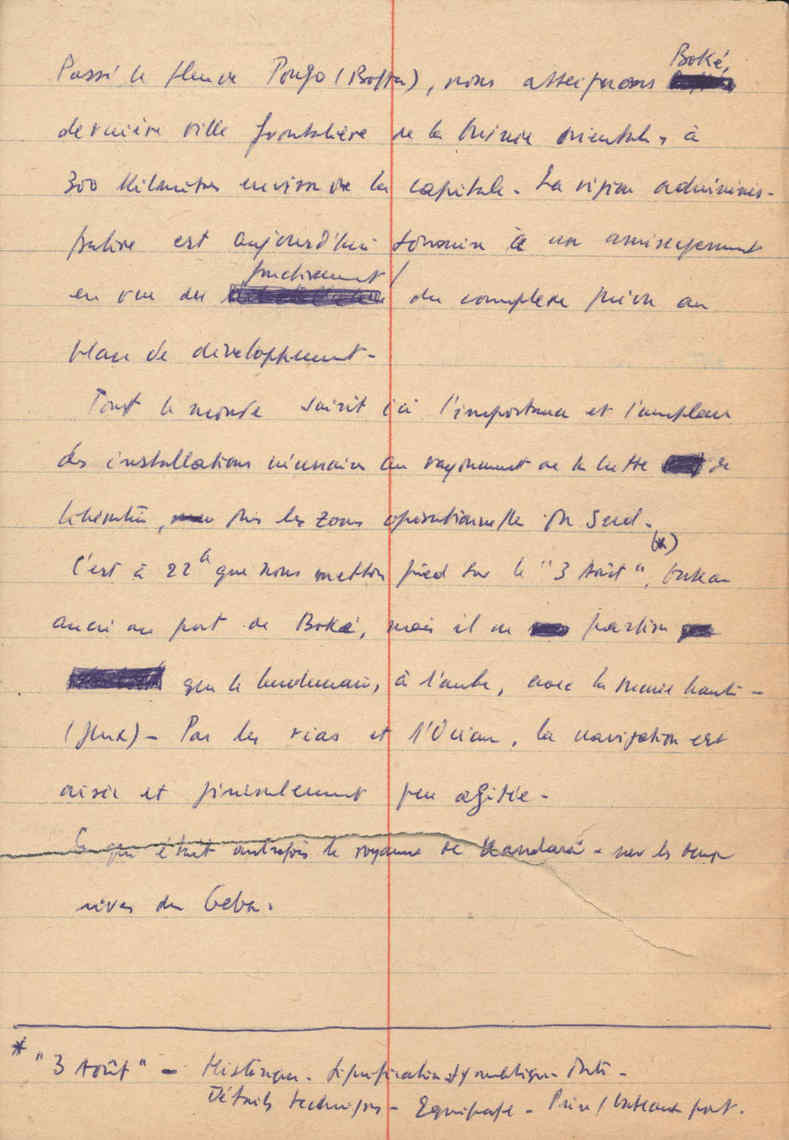 Boké,
Passé le fleuve Pongo (Boffa), nous atteignons
dernière ville frontalière de la Guinée orientale, à
300 kilomètres environ de la capitale. La région adminis-
trative est aujourd'hui à un aménagement
fonctionnement
en vue du du complexe prévu au
plan de développement.
Tout le monde saisit ici l'importance et l'ampleur
des installations nécessaires au rayonnement de la lutte de
libération, les zones opérationnelles du Sud.
(*)
C'est à 22h que nous mettons pied sur le "3 Août", bateau
ancré au port de Boké, mais il ne partira
que le lendemain, à l'aube, avec la marée haute
(flux) - Par les rias et l'Océan, la navigation est
aisée et généralement peu agitée.
Ce qui était autrefois le royaume de - sur les deux
rives du Geba.
* "3 Août" - Historique. Signification symbolique. Date -
Détails techniques - Equipage - Prise / bateaux port.